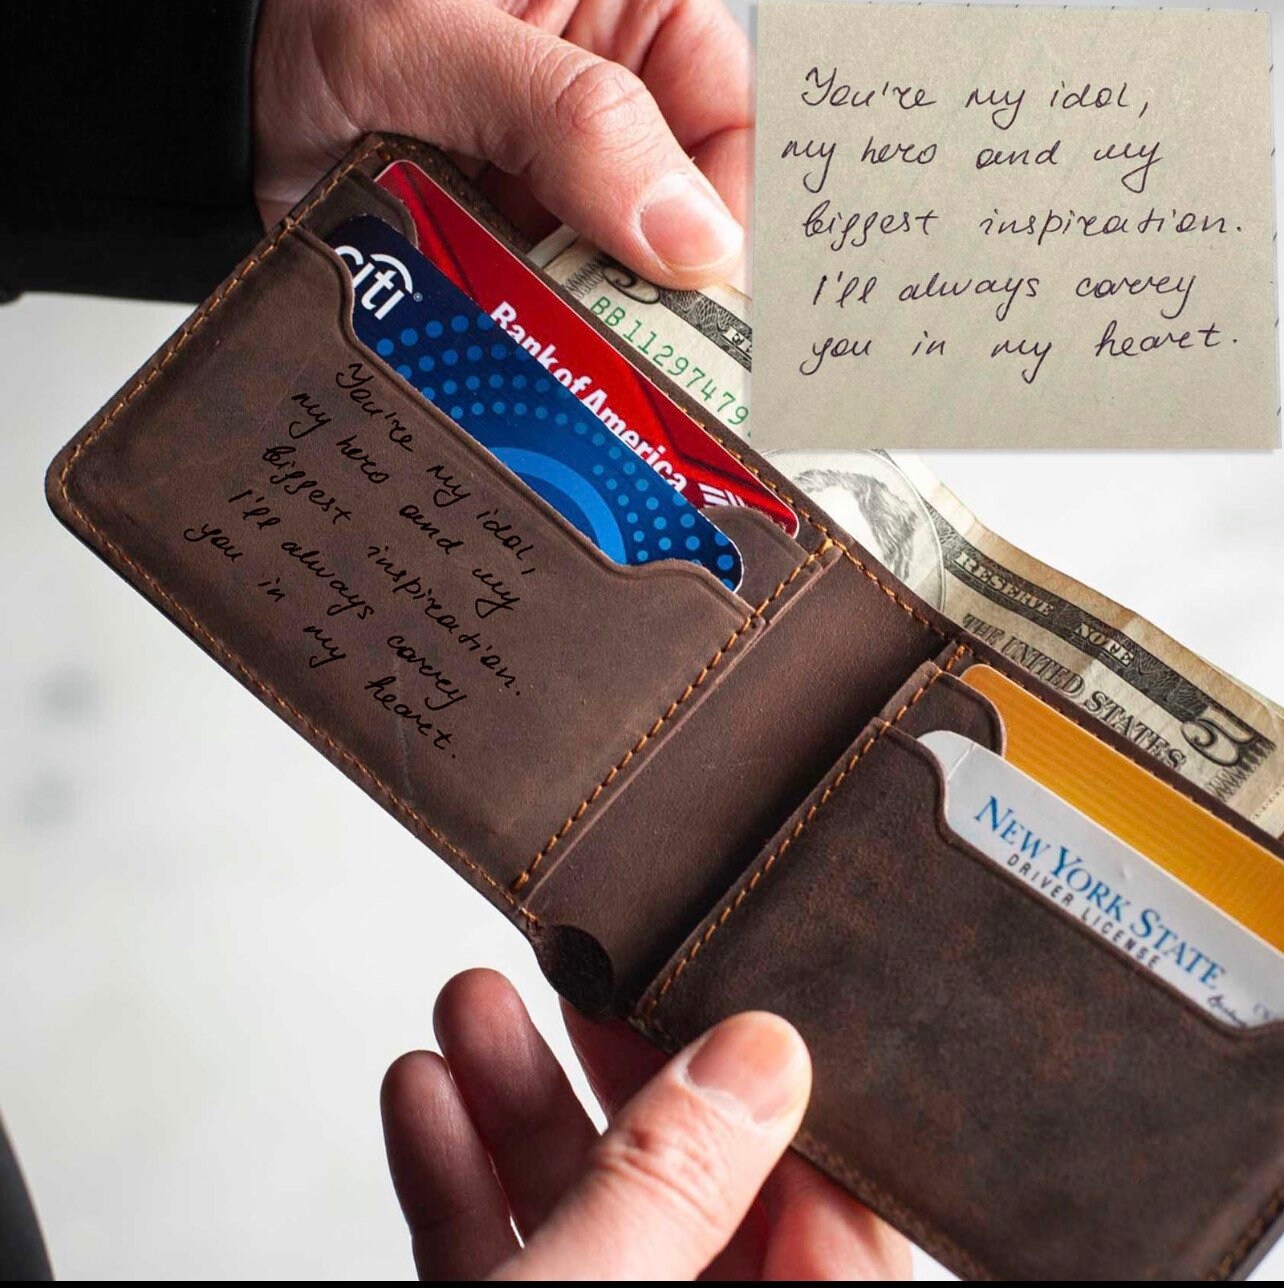 You're my idol,
my hero and my
biggest inspiration.
I'll always carry
you in my heart.
citi
Bank of America
BB11297479
You're my idol,
my hero and my
biggest inspiration.
I'll always carry
you in my heart.
RESERVE NOTE
THE UNITED STATES
5
NEW YORK STATE
DRIVER LICENSE